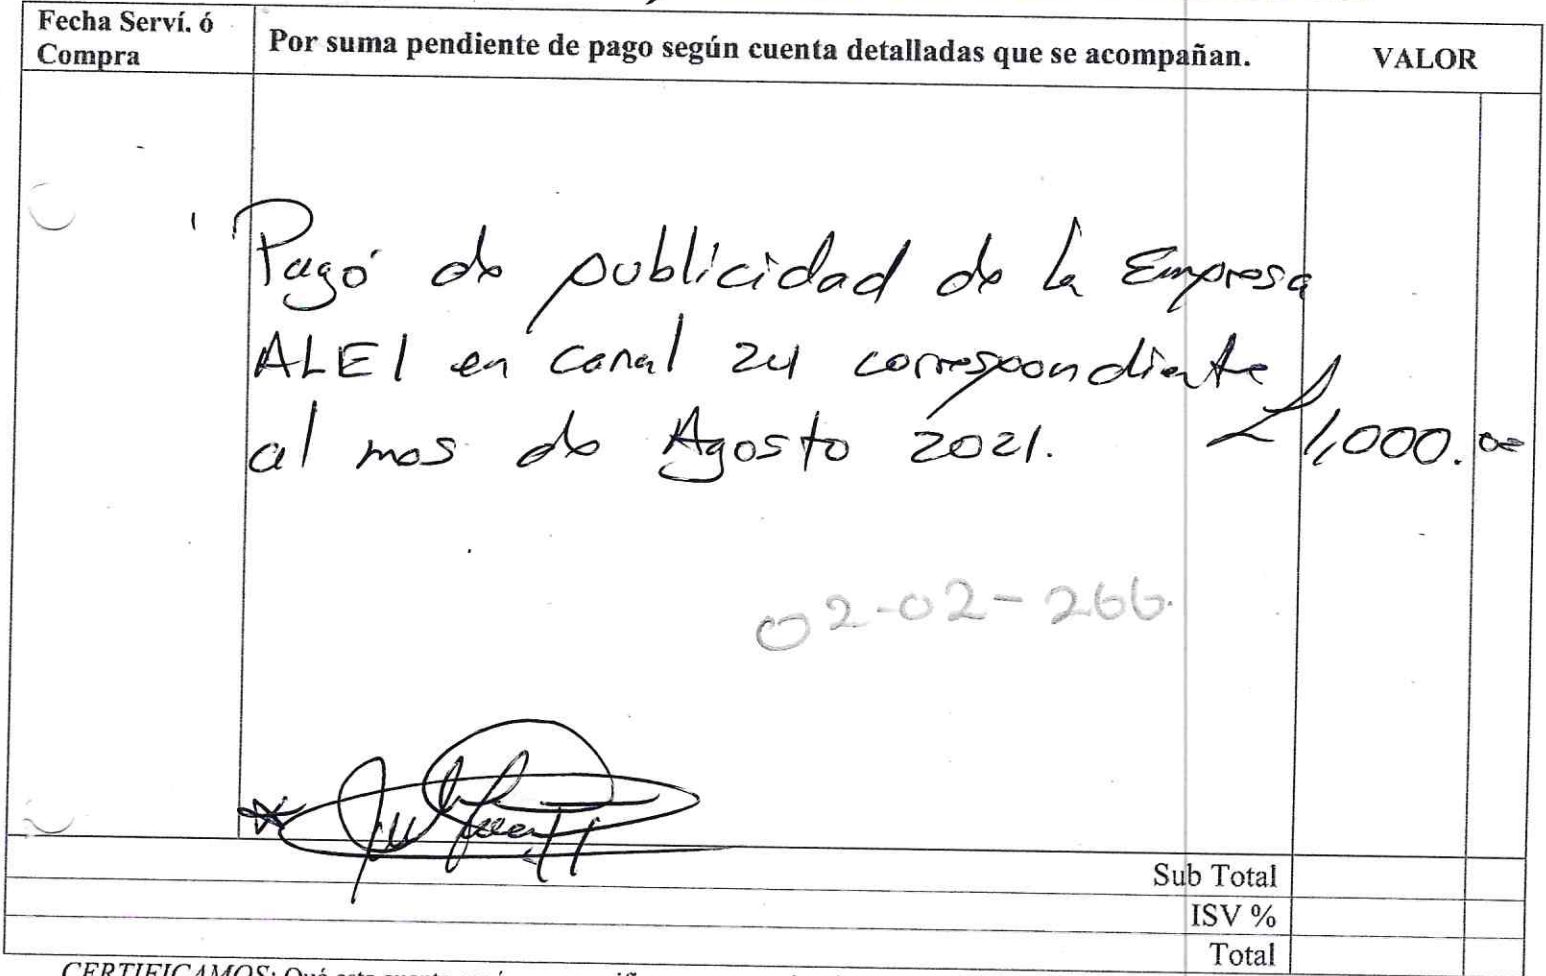 Fecha Serví. ó
Compra
Por suma pendiente de pago según cuenta detalladas que se acompañan.
VALOR
Pagó de publicidad de la Empresa
ALEI en canal 24 correspondiente
al mes de Agosto 2021. L 1,000.00
02-02-266.
Sub Total
ISV %
Total
CERTIFICAMOS: Qué